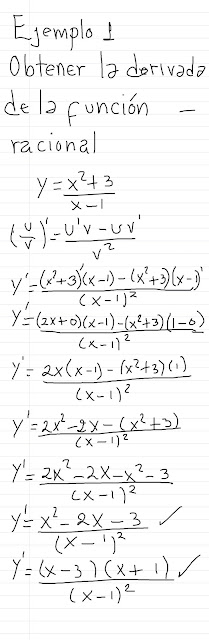 Ejemplo 1
Obtener la derivada
de la función –
racional
y = x²+3 / x-1
(u/v)' = u'v - uv' / v²
y' = (x²+3)'(x-1) - (x²+3)(x-1)' / (x-1)²
y' = (2x+0)(x-1) - (x²+3)(1-0) / (x-1)²
y' = 2x(x-1) - (x²+3)(1) / (x-1)²
y' = 2x²-2x-(x²+3) / (x-1)²
y' = 2x²-2x-x²-3 / (x-1)²
y' = x²-2x-3 / (x-1)² ✓
y' = (x-3)(x+1) / (x-1)² ✓